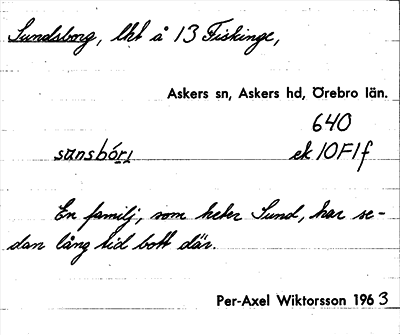 Sundsborg, lht å 13 Fiskinge,
Askers sn, Askers hd, Örebro län.
640
sunsbórı ek 10F1f
En familj, som heter Sund, har se-
dan lång tid bott där.
Per-Axel Wiktorsson 1963